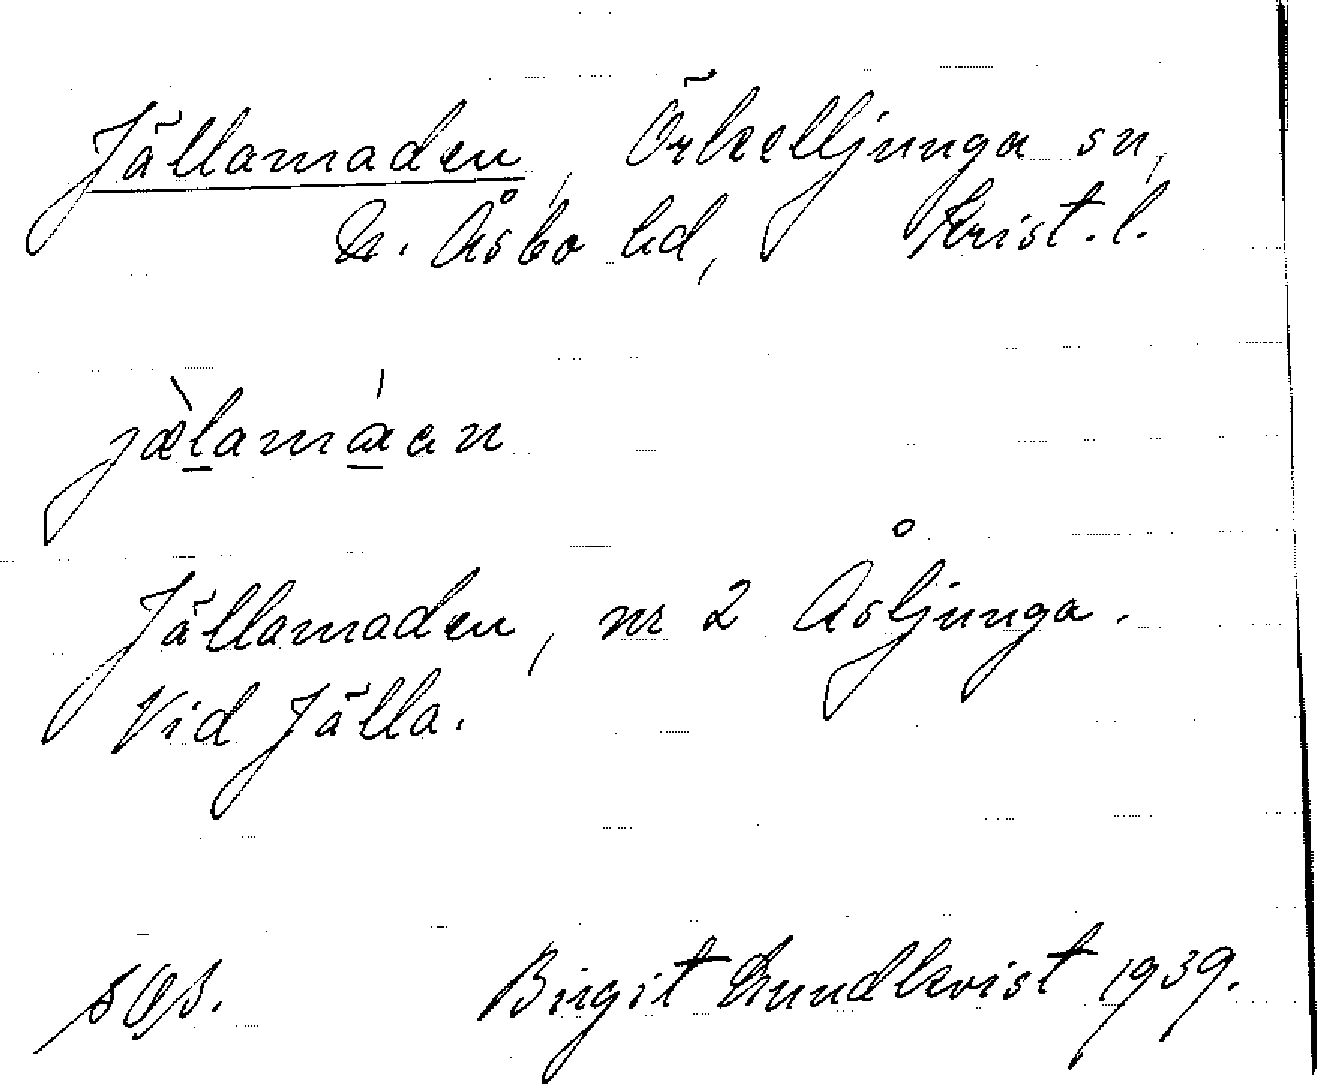 Jällamaden, Örkelljunga sn,
N. Åsbo hd, Krist. l.
jæ̀lamáan
Jällamaden, nr 2 Åsljunga.
Vid Jälla.
Birgit Lundkvist 1939.